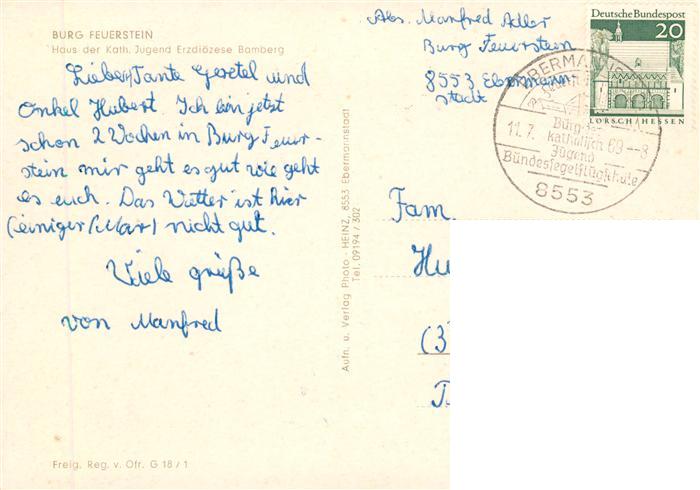 BURG FEUERSTEIN
Haus der Kath. Jugend Erzdiözese Bamberg
Liebe Tante Geretel und
Onkel Hubert. Ich bin jetzt
schon 2 Wochen in Burg Feuer-
stein mir geht es gut wie geht
es euch. Das Wetter ist hier
(einiger/Mar) nicht gut.
Viele grüße
von Manfred
Freig. Reg. v. Ofr. G 18/1
Aufn. u. Verlag Photo - HEINZ, 8553 Ebermannstadt
Tel. 09194 / 302
Abs. Manfred Adler
Burg Feuerstein
8553 Ebermann
stadt
Deutsche Bundespost
20
LORSCH/HESSEN
11.7. 69--8
Burg der
katholisch
Jugend
Bundessegelflugschule
8553
Fam.
Hu
(3